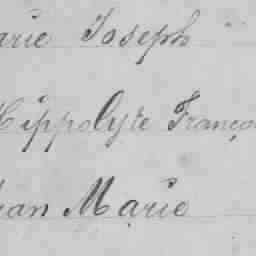 arie Joseph
Hippolyte Franço
ean Marie